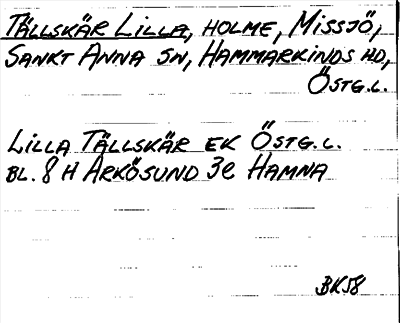 TÄLLSKÄR LILLA, HOLME, MISSJÖ,
SANKT ANNA SN, HAMMARKINDS HD,
ÖSTG.L.
LILLA TÄLLSKÄR EK ÖSTG.L.
BL. 8 H ARKÖSUND 3e HAMNA
BK58